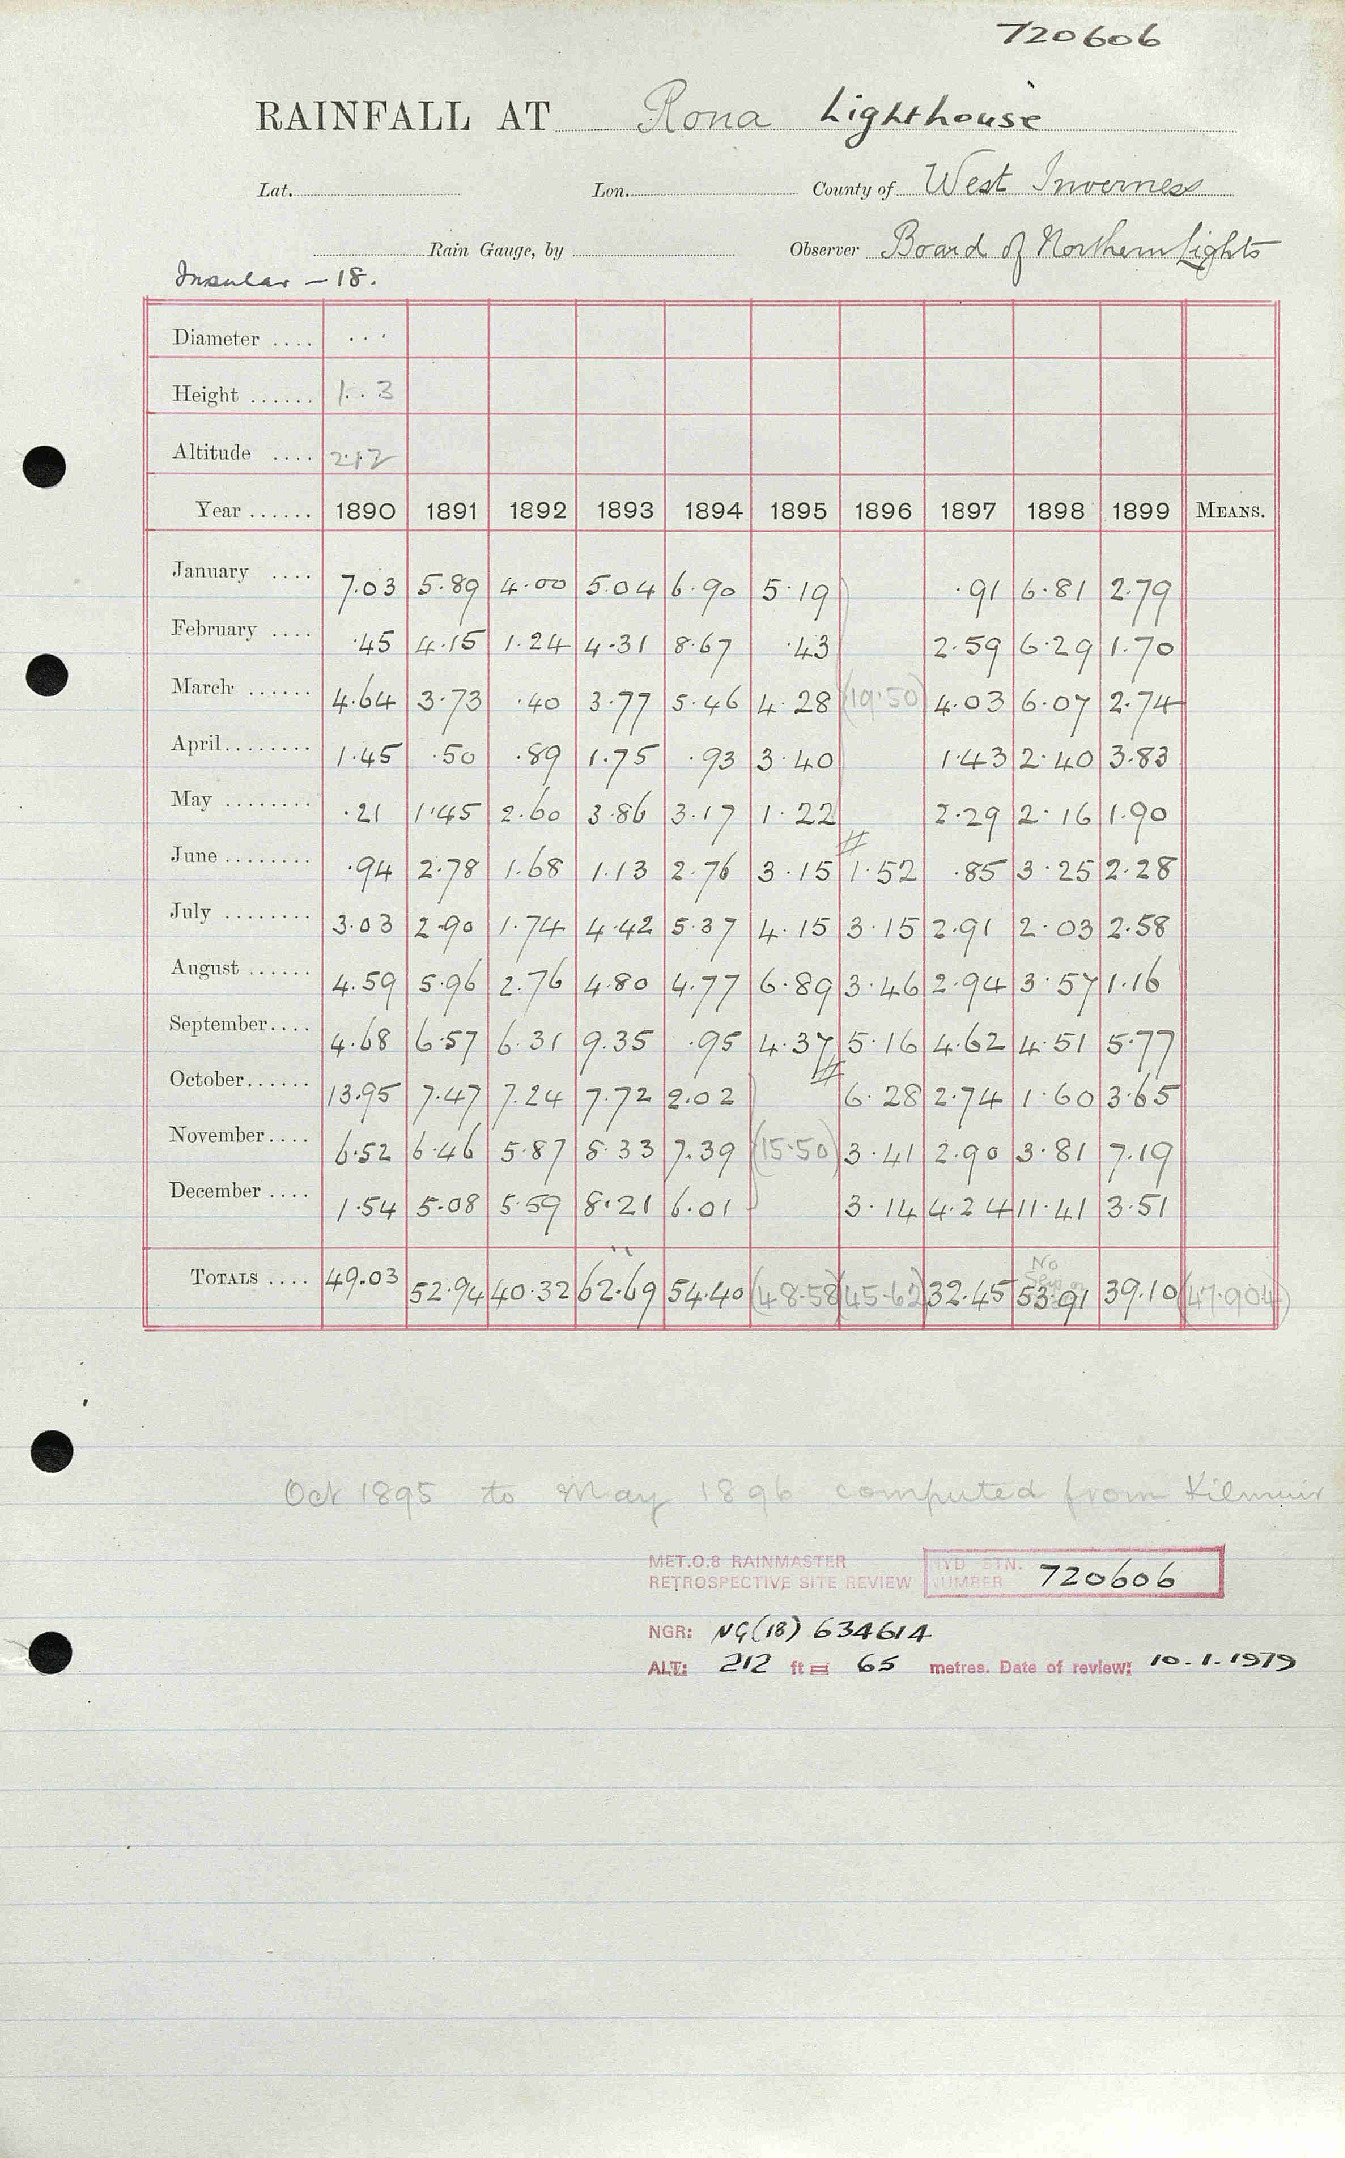 720606
RAINFALL AT Rona Lighthouse
Lat. Lon. County of West Inverness
Rain Gauge, by Observer Board of Northern Lights
Insular - 18.
Diameter .... ...
Height ...... 1..3
Altitude .... 212
Year ...... 1890 1891 1892 1893 1894 1895 1896 1897 1898 1899 MEANS.
January .... 7.03 5.89 4.00 5.04 6.90 5.19 .91 6.81 2.79
February .... .45 4.15 1.24 4.31 8.67 .43 2.59 6.29 1.70
March ...... 4.64 3.73 .40 3.77 5.46 4.28 (19.50) 4.03 6.07 2.74
April........ 1.45 .50 .89 1.75 .93 3.40 1.43 2.40 3.83
May ........ .21 1.45 2.60 3.86 3.17 1.22 2.29 2.16 1.90
June ........ .94 2.78 1.68 1.13 2.76 3.15 # 1.52 .85 3.25 2.28
July ........ 3.03 2.90 1.74 4.42 5.37 4.15 3.15 2.91 2.03 2.58
August ...... 4.59 5.96 2.76 4.80 4.77 6.89 3.46 2.94 3.57 1.16
September.... 4.68 6.57 6.31 9.35 .95 4.37 5.16 4.62 4.51 5.77
October...... 13.95 7.47 7.24 7.72 2.02 # 6.28 2.74 1.60 3.65
November.... 6.52 6.46 5.87 8.33 7.39 (15.50) 3.41 2.90 3.81 7.19
December .... 1.54 5.08 5.59 8.21 6.01 3.14 4.24 11.41 3.51
No
TOTALS .... 49.03 52.94 40.32 62.69 54.40 (48.58) (45.62) 32.45 53.91 39.10 (47.904)
Oct 1895 to May 1896 computed from Kilmuir
MET.O.8 RAINMASTER
RETROSPECTIVE SITE REVIEW
HYD STN.
NUMBER 720606
NGR: NG(18) 634614
ALT: 212 ft = 65 metres. Date of review: 10.1.1979